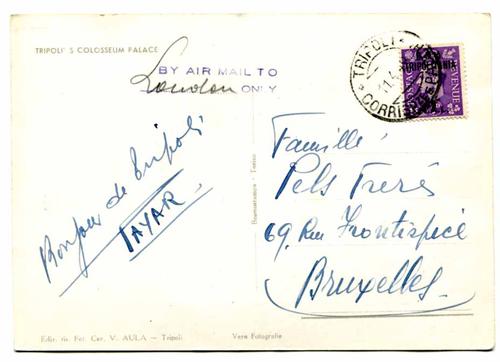 TRIPOLI' S COLOSSEUM PALACE
BY AIR MAIL TO
London ONLY
TRIPOLI
CORRIS
REVENUE
Bonjour de Tripoli
TAYAR
Famille
Pels Frerès
69, Rue Frontispice
Bruxelles
Edir. ris. Fot. Cav. V. AULA - Tripoli
Vera Fotografia